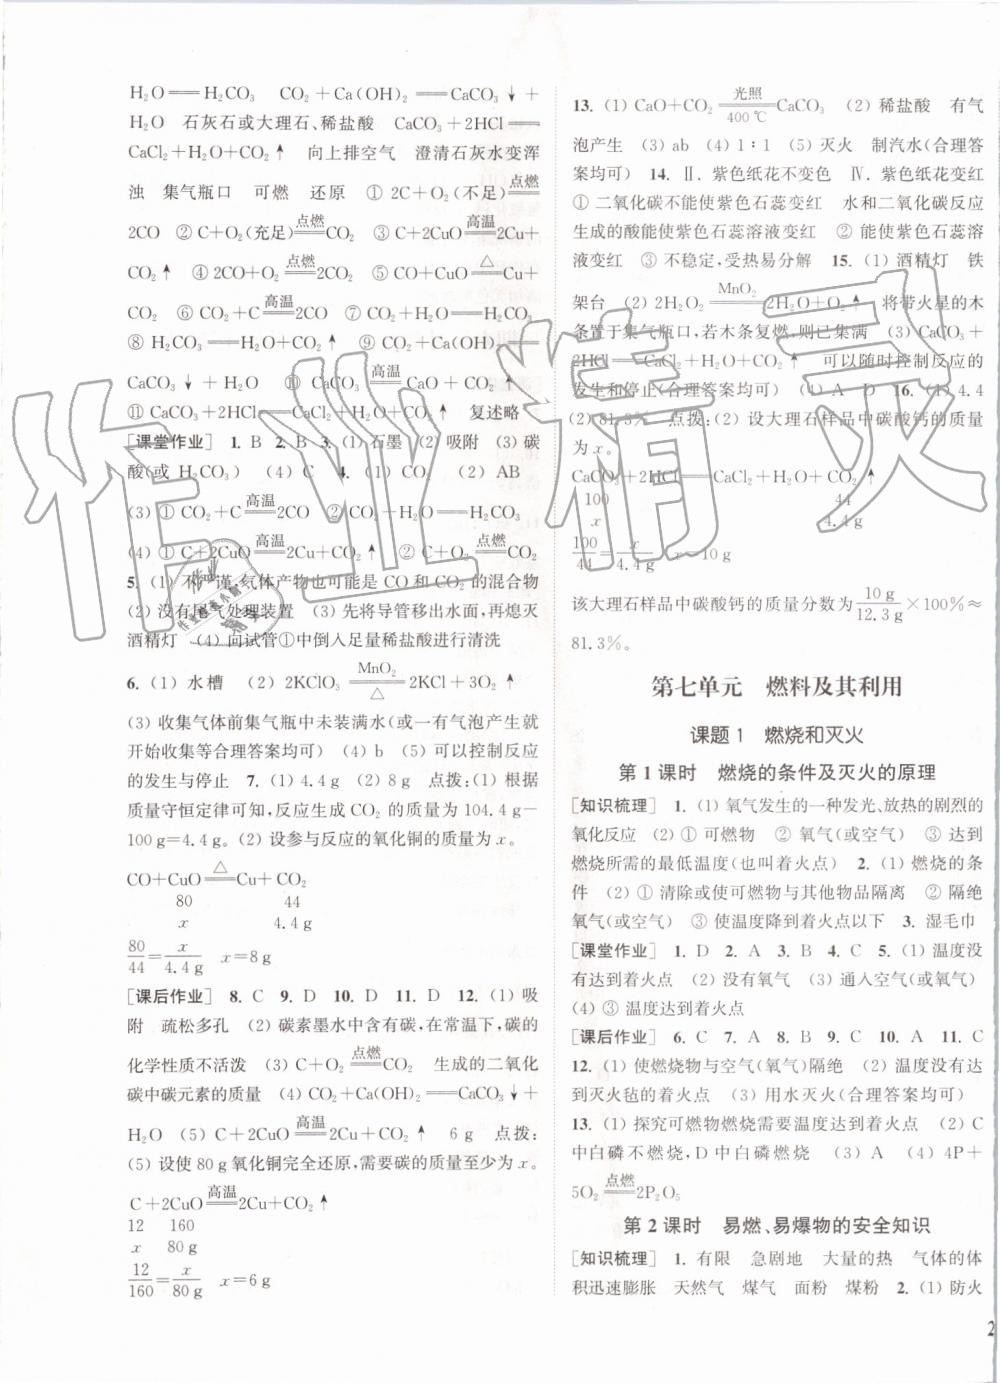 H₂O══H₂CO₃ CO₂＋Ca(OH)₂══CaCO₃↓＋
H₂O 石灰石或大理石、稀盐酸 CaCO₃＋2HCl══
CaCl₂＋H₂O＋CO₂↑ 向上排空气 澄清石灰水变浑
浊 集气瓶口 可燃 还原 ① 2C＋O₂(不足)═点燃═
2CO ② C＋O₂(充足)═点燃═CO₂ ③ C＋2CuO═高温═2Cu＋
CO₂↑ ④ 2CO＋O₂═点燃═2CO₂ ⑤ CO＋CuO═△═Cu＋
CO₂ ⑥ CO₂＋C═高温═2CO ⑦ CO₂＋H₂O══H₂CO₃
⑧ H₂CO₃══H₂O＋CO₂↑ ⑨ CO₂＋Ca(OH)₂══
CaCO₃↓＋H₂O ⑩ CaCO₃═高温═CaO＋CO₂↑
⑪ CaCO₃＋2HCl══CaCl₂＋H₂O＋CO₂↑ 复述略
[课堂作业] 1. B 2. B 3. (1) 石墨 (2) 吸附 (3) 碳
酸(或 H₂CO₃) (4) C 4. (1) CO₂ (2) AB
(3) ① CO₂＋C═高温═2CO ② CO₂＋H₂O══H₂CO₃
(4) ① C＋2CuO═高温═2Cu＋CO₂↑ ② C＋O₂═点燃═CO₂
5. (1) 不严谨,气体产物也可能是 CO 和 CO₂ 的混合物
(2) 没有尾气处理装置 (3) 先将导管移出水面,再熄灭
酒精灯 (4) 向试管①中倒入足量稀盐酸进行清洗
6. (1) 水槽 (2) 2KClO₃═MnO₂/△═2KCl＋3O₂↑
(3) 收集气体前集气瓶中未装满水(或一有气泡产生就
开始收集等合理答案均可) (4) b (5) 可以控制反应
的发生与停止 7. (1) 4.4 g (2) 8 g 点拨：(1) 根据
质量守恒定律可知,反应生成 CO₂ 的质量为 104.4 g－
100 g＝4.4 g。(2) 设参与反应的氧化铜的质量为 x。
CO＋CuO═△═Cu＋CO₂
80 44
x 4.4 g
80/44＝x/4.4 g x＝8 g
[课后作业] 8. C 9. D 10. D 11. D 12. (1) 吸
附 疏松多孔 (2) 碳素墨水中含有碳,在常温下,碳的
化学性质不活泼 (3) C＋O₂═点燃═CO₂ 生成的二氧化
碳中碳元素的质量 (4) CO₂＋Ca(OH)₂══CaCO₃↓＋
H₂O (5) C＋2CuO═高温═2Cu＋CO₂↑ 6 g 点拨：
(5) 设使 80 g 氧化铜完全还原,需要碳的质量至少为 x。
C＋2CuO═高温═2Cu＋CO₂↑
12 160
x 80 g
12/160＝x/80 g x＝6 g
13. (1) CaO＋CO₂═光照/400 ℃═CaCO₃ (2) 稀盐酸 有气
泡产生 (3) ab (4) 1∶1 (5) 灭火 制汽水(合理答
案均可) 14. Ⅱ. 紫色纸花不变色 Ⅳ. 紫色纸花变红
① 二氧化碳不能使紫色石蕊变红 水和二氧化碳反应
生成的酸能使紫色石蕊溶液变红 ② 能使紫色石蕊溶
液变红 ③ 不稳定,受热易分解 15. (1) 酒精灯 铁
架台 (2) 2H₂O₂═MnO₂═2H₂O＋O₂↑ 将带火星的木
条置于集气瓶口,若木条复燃,则已集满 (3) CaCO₃＋
2HCl══CaCl₂＋H₂O＋CO₂↑ 可以随时控制反应的
发生和停止(合理答案均可) (4) A D 16. (1) 4.4
(2) 81.3% 点拨：(2) 设大理石样品中碳酸钙的质量
为 x。
CaCO₃＋2HCl══CaCl₂＋H₂O＋CO₂↑
100 44
x 4.4 g
100/44＝x/4.4 g x＝10 g
该大理石样品中碳酸钙的质量分数为 10 g/12.3 g×100%≈
81.3%。
第七单元 燃料及其利用
课题 1 燃烧和灭火
第 1 课时 燃烧的条件及灭火的原理
[知识梳理] 1. (1) 氧气发生的一种发光、放热的剧烈的
氧化反应 (2) ① 可燃物 ② 氧气(或空气) ③ 达到
燃烧所需的最低温度(也叫着火点) 2. (1) 燃烧的条
件 (2) ① 清除或使可燃物与其他物品隔离 ② 隔绝
氧气(或空气) ③ 使温度降到着火点以下 3. 湿毛巾
[课堂作业] 1. D 2. A 3. B 4. C 5. (1) 温度没
有达到着火点 (2) 没有氧气 (3) 通入空气(或氧气)
(4) ③ 温度达到着火点
[课后作业] 6. C 7. A 8. B 9. C 10. A 11. C
12. (1) 使燃烧物与空气(氧气)隔绝 (2) 温度没有达
到灭火毡的着火点 (3) 用水灭火(合理答案均可)
13. (1) 探究可燃物燃烧需要温度达到着火点 (2) C
中白磷不燃烧,D 中白磷燃烧 (3) A (4) 4P＋
5O₂═点燃═2P₂O₅
第 2 课时 易燃、易爆物的安全知识
[知识梳理] 1. 有限 急剧地 大量的热 气体的体
积迅速膨胀 天然气 煤气 面粉 煤粉 2. (1) 防火
2
作业精灵